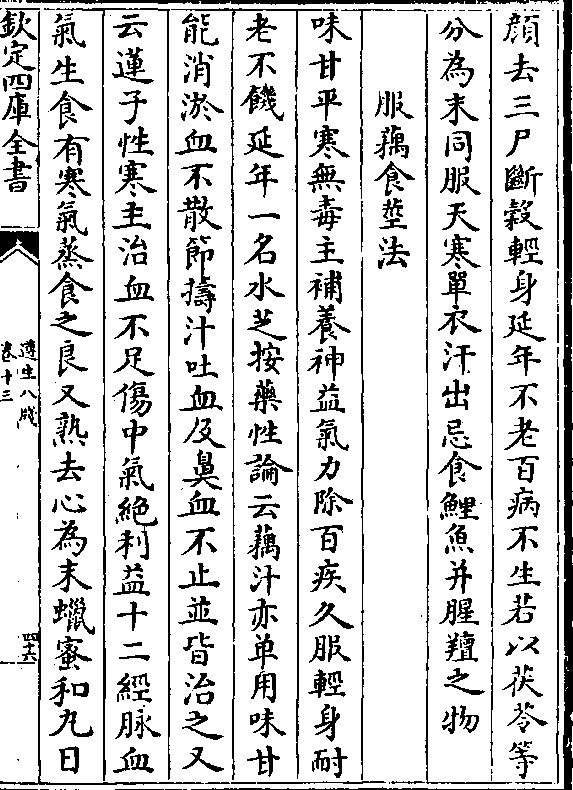 顔去三尸斷穀輕身延年不老百病不生若以茯苓等
分為末同服天寒單衣汗出忌食鯉魚并腥羶之物
服藕食莖法
味甘平寒無毒主補養神益氣力除百疾久服輕身耐
老不饑延年一名水芝按藥性論云藕汁亦单用味甘
能消淤血不散節擣汁吐血及鼻血不止並皆治之又
云蓮子性寒主治血不足傷中氣絶利益十二經脉血
氣生食有寒氣蒸食之良又熟去心為末蠟蜜和丸日
欽定四庫全書
遵生八牋
卷十三
四十六